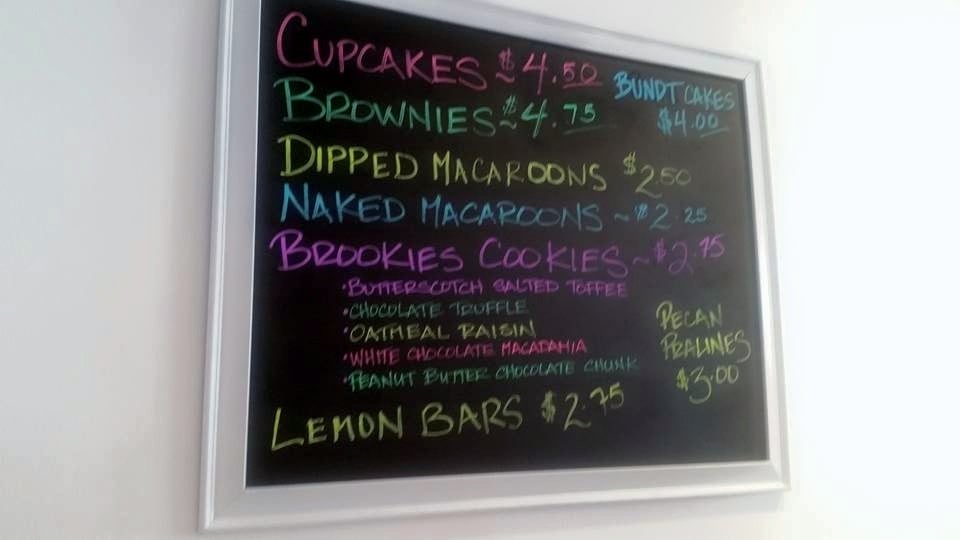 CUPCAKES ~ $4.50
BROWNIES ~ $4.75
BUNDT CAKES
$4.00
DIPPED MACAROONS $2.50
NAKED MACAROONS ~ $2.25
BROOKIES COOKIES ~ $2.75
• BUTTERSCOTCH SALTED TOFFEE
• CHOCOLATE TRUFFLE
• OATMEAL RAISIN
• WHITE CHOCOLATE MACADAMIA
• PEANUT BUTTER CHOCOLATE CHUNK
PECAN
PRALINES
$3.00
LEMON BARS $2.75